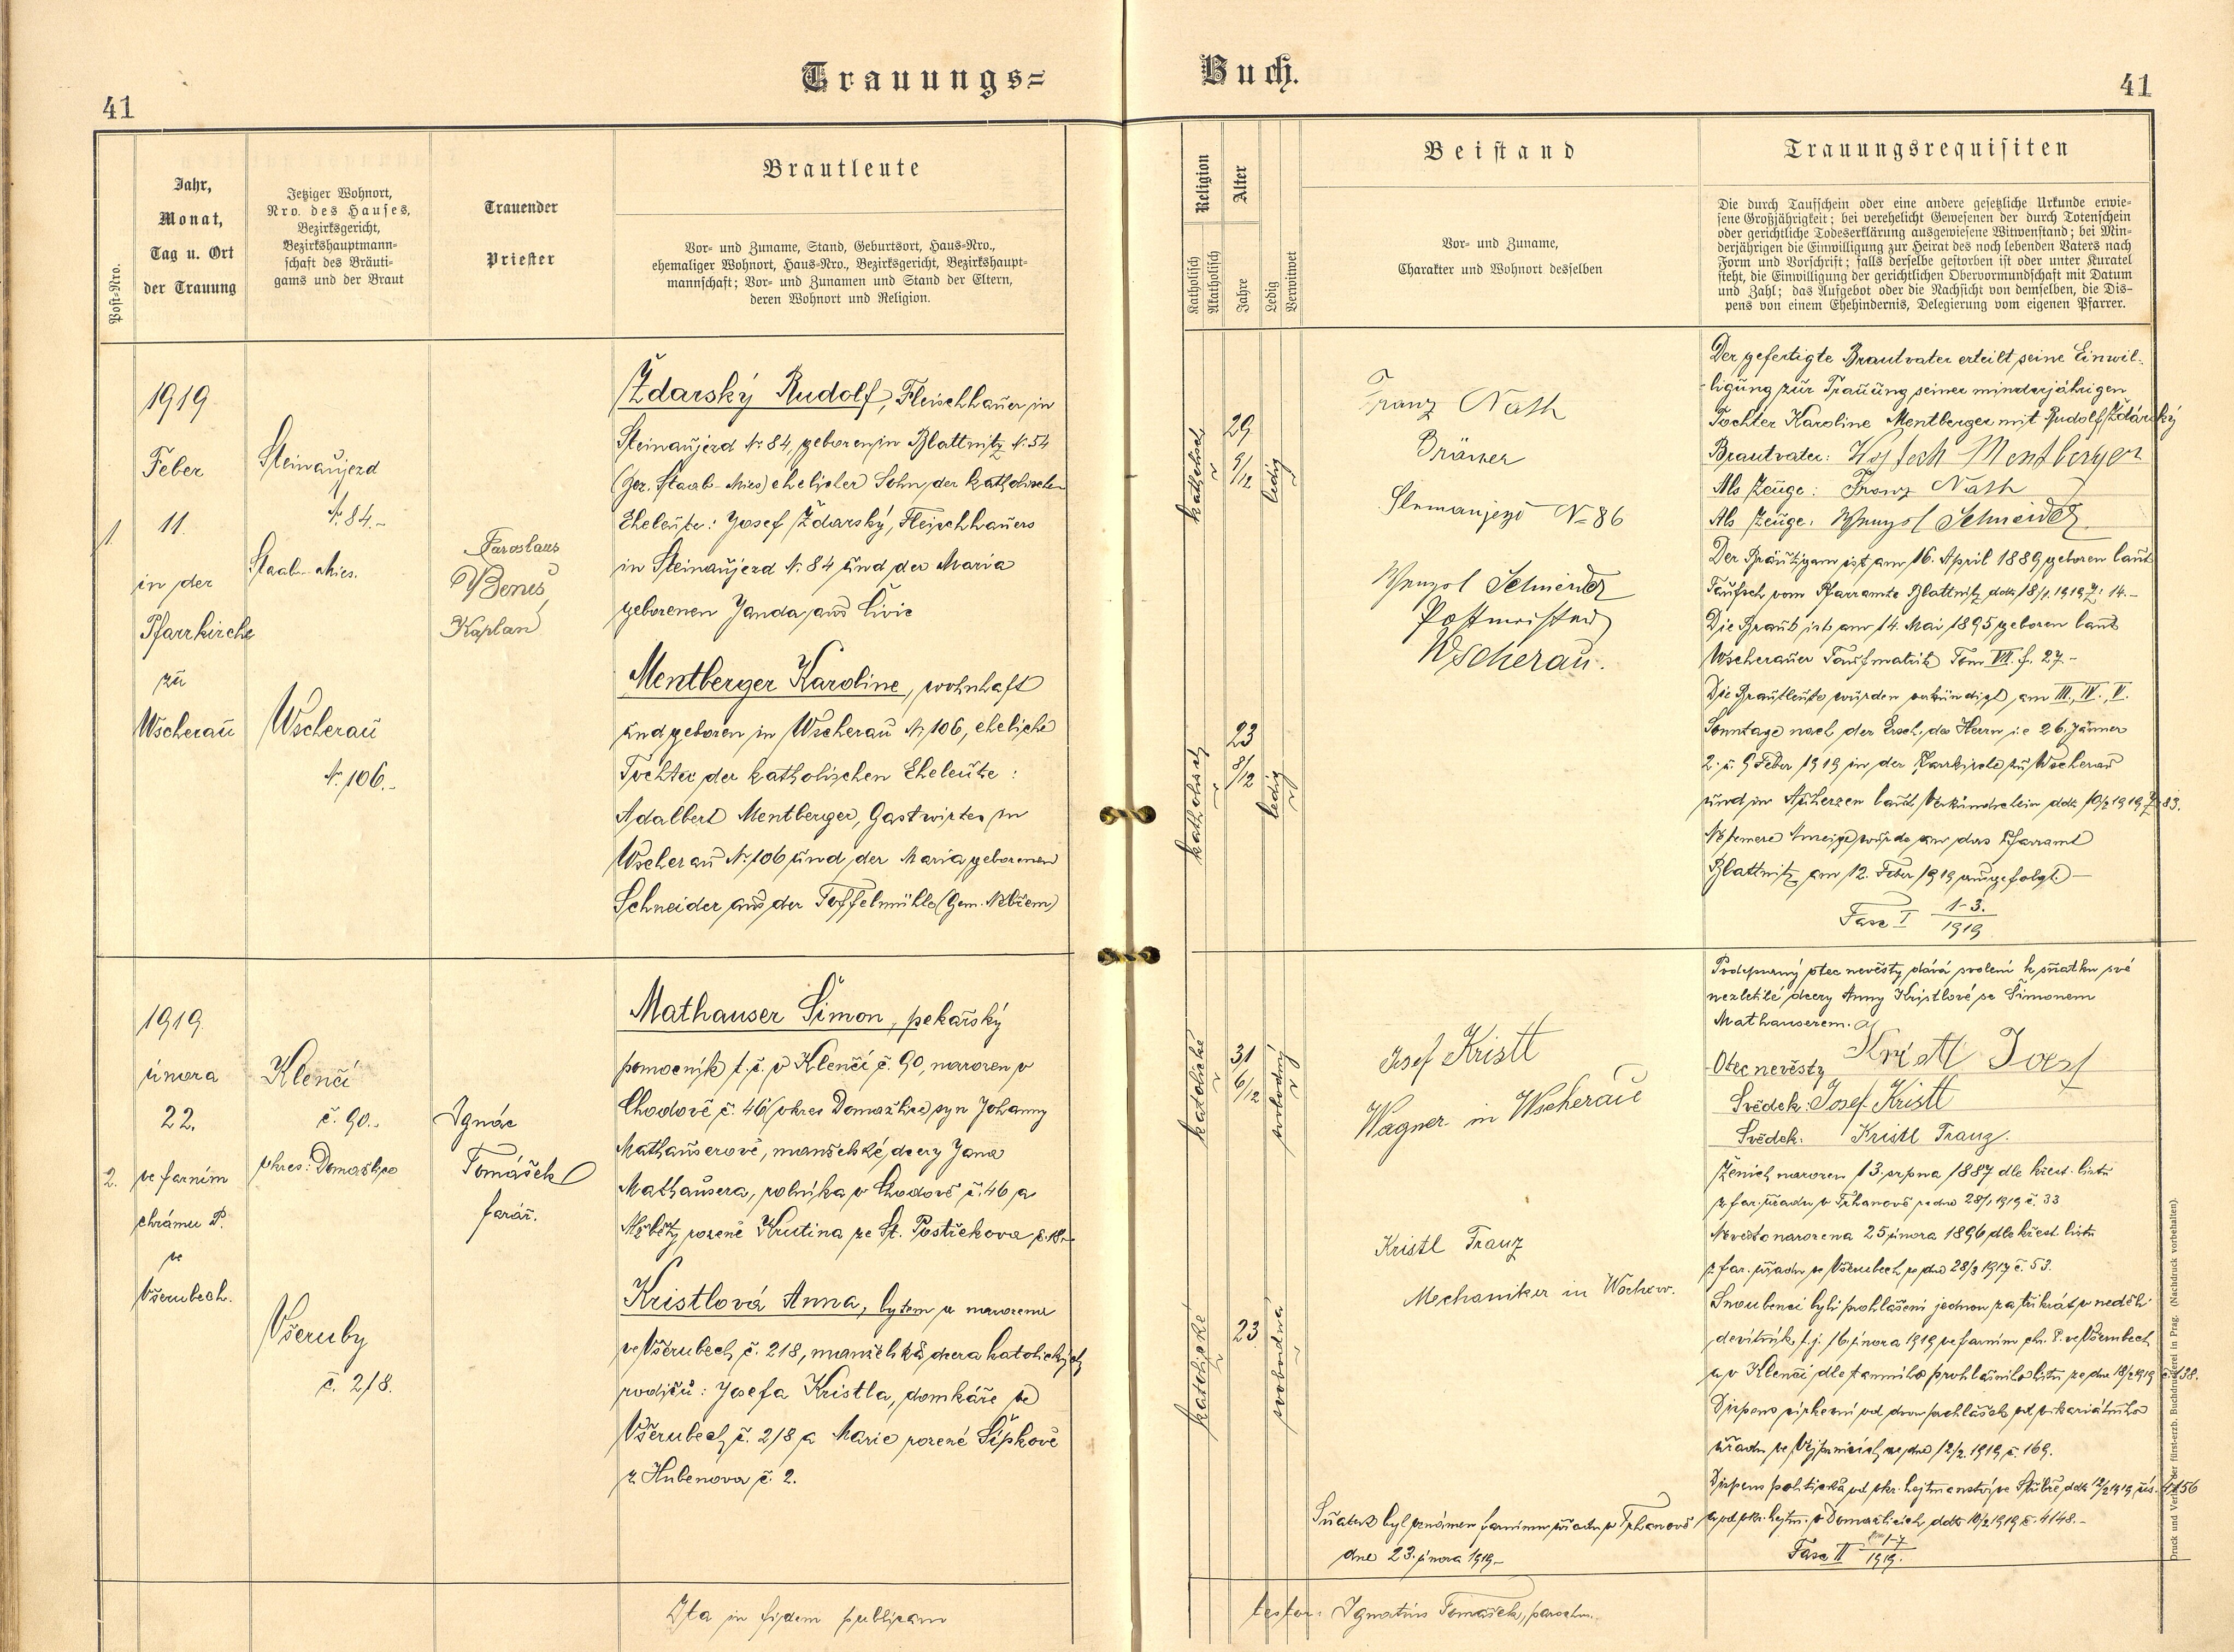 Trauungs=
Buch.
41
41
Post-Nro.
Jahr,
Monat,
Tag u. Ort
der Trauung
Jetziger Wohnort,
Nro. des Hauses,
Bezirksgericht,
Bezirkshauptmann-
schaft des Bräuti-
gams und der Braut
Trauender
Priester
Brautleute
Vor- und Zuname, Stand, Geburtsort, Haus-Nro.,
ehemaliger Wohnort, Haus-Nro., Bezirksgericht, Bezirkshaupt-
mannschaft; Vor- und Zunamen und Stand der Eltern,
deren Wohnort und Religion.
Religion
Katholisch
Akatholisch
Alter
Jahre
Ledig
Verwitwet
Beistand
Vor- und Zuname,
Charakter und Wohnort desselben
Trauungsrequisiten
Die durch Taufschein oder eine andere gesetzliche Urkunde erwie-
sene Großjährigkeit; bei verehelicht Gewesenen der durch Totenschein
oder gerichtliche Todeserklärung ausgewiesene Witwenstand; bei Min-
derjährigen die Einwilligung zur Heirat des noch lebenden Vaters nach
Form und Vorschrift; falls derselbe gestorben ist oder unter Kuratel
steht, die Einwilligung der gerichtlichen Obervormundschaft mit Datum
und Zahl; das Aufgebot oder die Nachsicht von demselben, die Dis-
pens von einem Ehehindernis, Delegierung vom eigenen Pfarrer.
1.
1919
Feber
11.
in der
Pfarrkirche
zu
Wscherau
Steinaujezd
N. 84.-
Staab-Mies.
Wscherau
N. 106.-
Jaroslaus
Beneš
Kaplan
Ždarský Rudolf, Fleischhauer in
Steinaujezd N. 84, geboren in Blattnitz N. 54
(Bez. Staab-Mies) ehelicher Sohn der katholischen
Eheleute: Josef Ždarský, Fleischhauers
in Steinaujezd N. 84 und der Maria
geborenen Janda, aus Livic
Mentberger Karoline, wohnhaft
und geboren in Wscherau N. 106, eheliche
Tochter der katholischen Eheleute:
Adalbert Mentberger, Gastwirtes in
Wscherau N. 106 und der Maria, geborenen
Schneider aus der Toffelmühle (Gem. Nebřem)
katholisch
29
9/12
ledig
katholisch
23
8/12
ledig
Franz Nath
Bräuer
N 86
Wenzel Schneider
Postmeister
Wscherau.
Der gefertigte Brautvater erteilt seine Einwil-
ligung zur Trauung seiner minderjährigen
Tochter Karoline Mentberger mit Rudolf Ždárský
Brautvater: Mentberger
Als Zeuge: Franz Nath
Als Zeuge: Wenzel Schneider
Der Bräutigam ist am 16. April 1889 geboren laut
Taufsch. vom Pfarramte Blattnitz ddt 18/1. 1919 Z: 14.-
Die Braut ist am 14. Mai 1895 geboren laut
Wscherauer Taufmatrik Tom VII. f. 27.-
Die Brautleute wurden verkündigt am III., IV., V.
Sonntage nach der Ersch. des Herrn i.e 26. Jänner
2. u. 9 Feber 1919 in der Pfarrkirche zu Wscherau
und in Auherzen laut Verkündschein ddt 10/2 1919 Z. 83.
Anzeige wurde an das Pfarramt
Blattnitz am 12. Feber 1919 ausgefolgt.-
Fasc I 1-3. 1919
2.
1919
února
22.
ve farním
chrámu P.
ve
Všerubech.
Klenčí
č. 90.-
okres: Domažlice
Všeruby
č. 218.
Ignác
Tomášek
farář.
Mathauser Šimon, pekařský
pomocník t.č. v Klenčí č. 90, narozen v
Chodově č. 46 (okres Domažlice) syn Johanny
Mathauserové, manželské dcery Jana
Mathausera, rolníka v Chodově č. 46 a
Alžběty rozené Krutina ze St. Postřekova č. 18.-
Kristlová Anna, bytem a narozena
ve Všerubech č. 218, manželská dcera katolických
rodičů: Josefa Kristla, domkáře ve
Všerubech č. 218 a Marie rozené Šípkové
z Hubenova č. 2.
katolické
31
6/12
svobodný
katolické
23
svobodná
Josef Kristl
Wagner in Wscherau
Kristl Franz
Mechaniker in Wscherau.
Sňatek byl oznámen farnímu úřadu v Trhanově
dne 23. února 1919.-
Podepsaný otec nevěsty dává svolení k sňatku své
nezletilé dcery Anny Kristlové se Šimonem
Mathauserem.
Otec nevěsty Kristl Josef
Svědek: Josef Kristl
Svědek: Kristl Franz.
Ženich narozen 13. srpna 1887 dle křest. listu
z far. úřadu v Trhanově ze dne 28/1 1919 č. 33
Nevěsta narozena 25 února 1896 dle křest. listu
z far. úřadu ve Všerubech ze dne 28/3 1917 č. 53.
Snoubenci byli prohlášeni jednou za třikrát v neděli
devítník t.j. 16. února 1919 ve farním chr. P. ve Všerubech
a v Klenčí dle tamního prohlašního listu ze dne 18/2 1919 č. 138.
Dispens církevní od dvou prohlášek od vikariátního
úřadu ve Vejprnicích ze dne 12/2. 1919 č. 169.
Dispens politická od okr. hejtmanství ve Stříbře ddt 12/2 1919 čís. 4156
a od okr. hejtm. v Domažlicích ddto 10/2 1919 č. 4148.-
Fasc II 1-7 1919.
Ita in fidem publicam
testor: Ignatius Tomášek, parochus.
Druck und Verlag der fürst-erzb. Buchdruckerei in Prag. (Nachdruck vorbehalten).